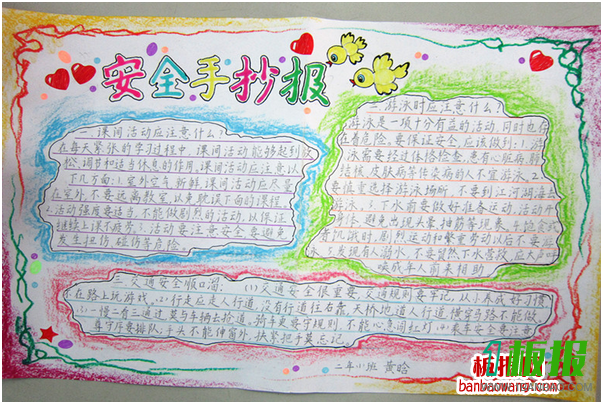 安全手抄报
一、课间活动应注意什么?
在每天紧张的学习过程中,课间活动能够起到放
松、调节和适当休息的作用。课间活动应注意以
下几方面:1.室外空气新鲜,课间活动应尽量
在室外,不要远离教室,以免耽误下面的课程。
活动强度要适当,不能做剧烈的活动,以保证
继续上课不疲劳。活动要注意安全,要避免
发生扭伤、碰伤等危险。
二、游泳时应注意什么?
游泳是一项十分有益的活动,同时也存
在着危险。要保证安全,应该做到:1.游
泳需要经过体格检查。患有心脏病、
皮肤病等传染病的人不宜游泳。2.
要慎重选择游泳场所,不要到江河湖海
游泳。3.下水前要做好准备活动,活动
身体,避免出现头晕、抽筋等现象。
剧烈运动和繁重劳动以后不要
发现有人溺水,不要贸然下水营救,应大声
唤成年人前来相助
三、交通安全顺口溜:(1)交通安全很重要,交通规则要牢记,从小养成好习惯,
不在路上玩游戏。(2)行走应走人行道,没有行道往右靠,天桥地道人行道,横穿马路不能做
一慢二看三通过,莫与车辆去抢道。骑车更要守规则,不能心急闯红灯。(4)乘车安全要注意,
遵守秩序要排队;手头不能伸窗外,扶紧把手莫忘记。
二年小班 黄晗
板报
板报网
banbaowang.com